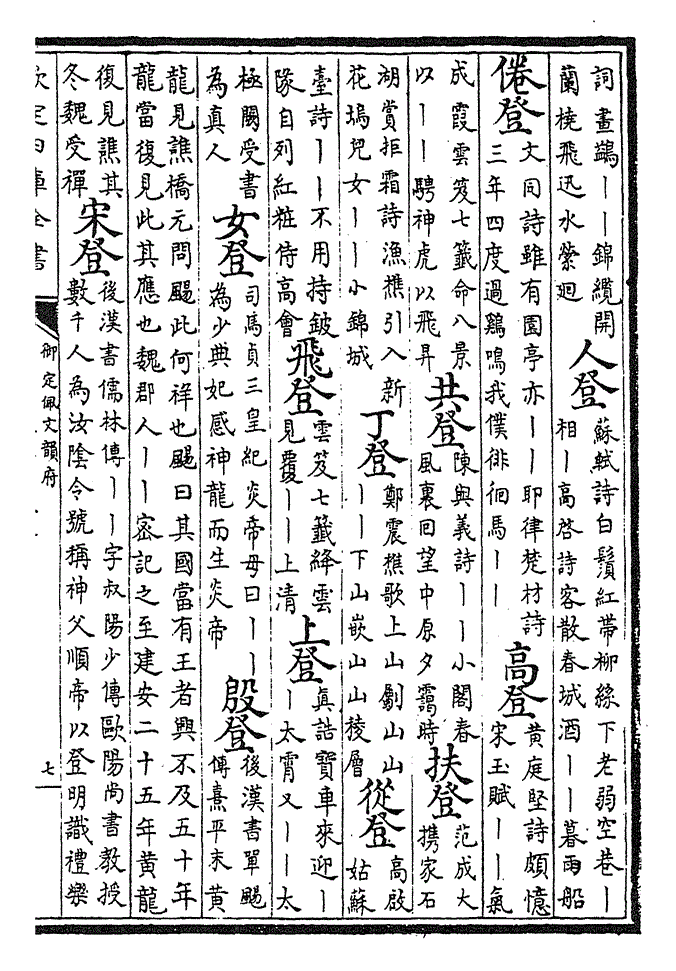 詞畫鷁丨丨錦纜開
蘭橈飛迅水縈廻
人登
蘇軾詩白鬚紅帶柳絲下老弱空巷丨
相丨高啓詩客散春城酒丨丨暮雨船
倦登
文同詩雖有園亭亦丨丨耶律楚材詩
三年四度過鷄鳴我僕徘徊馬丨丨
高登
黄庭堅詩頗憶
宋玉賦丨丨氣
成霞雲笈七籤命八景
以丨丨騁神虎以飛昇
共登
陳與義詩丨丨小閣春
風裏回望中原夕靄時
扶登
范成大
攜家石
湖賞拒霜詩漁樵引入新
花塢兒女丨丨小錦城
丁登
鄭震樵歌上山劚山山
丨丨下山嵌山山稜層
從登
高啟
姑蘇
臺詩丨丨不用持鈹
隊自列紅粧侍高會
飛登
雲笈七籤絳雲
見覆丨丨上清
上登
真誥寶車來迎丨
丨太霄又丨丨太
極闕受書
為真人
女登
司馬貞三皇紀炎帝母曰丨丨
為少典妃感神龍而生炎帝
殷登
後漢書單颺
傳熹平末黄
龍見譙橋元問颺此何祥也颺曰其國當有王者興不及五十年
龍當復見此其應也魏郡人丨丨密記之至建安二十五年黄龍
復見譙其
冬魏受禪
宋登
後漢書儒林傳丨丨字叔陽少傳歐陽尚書教授
數千人為汝陰令號稱神父順帝以登明識禮樂
欽定四庫全書
御定佩文韻府
七